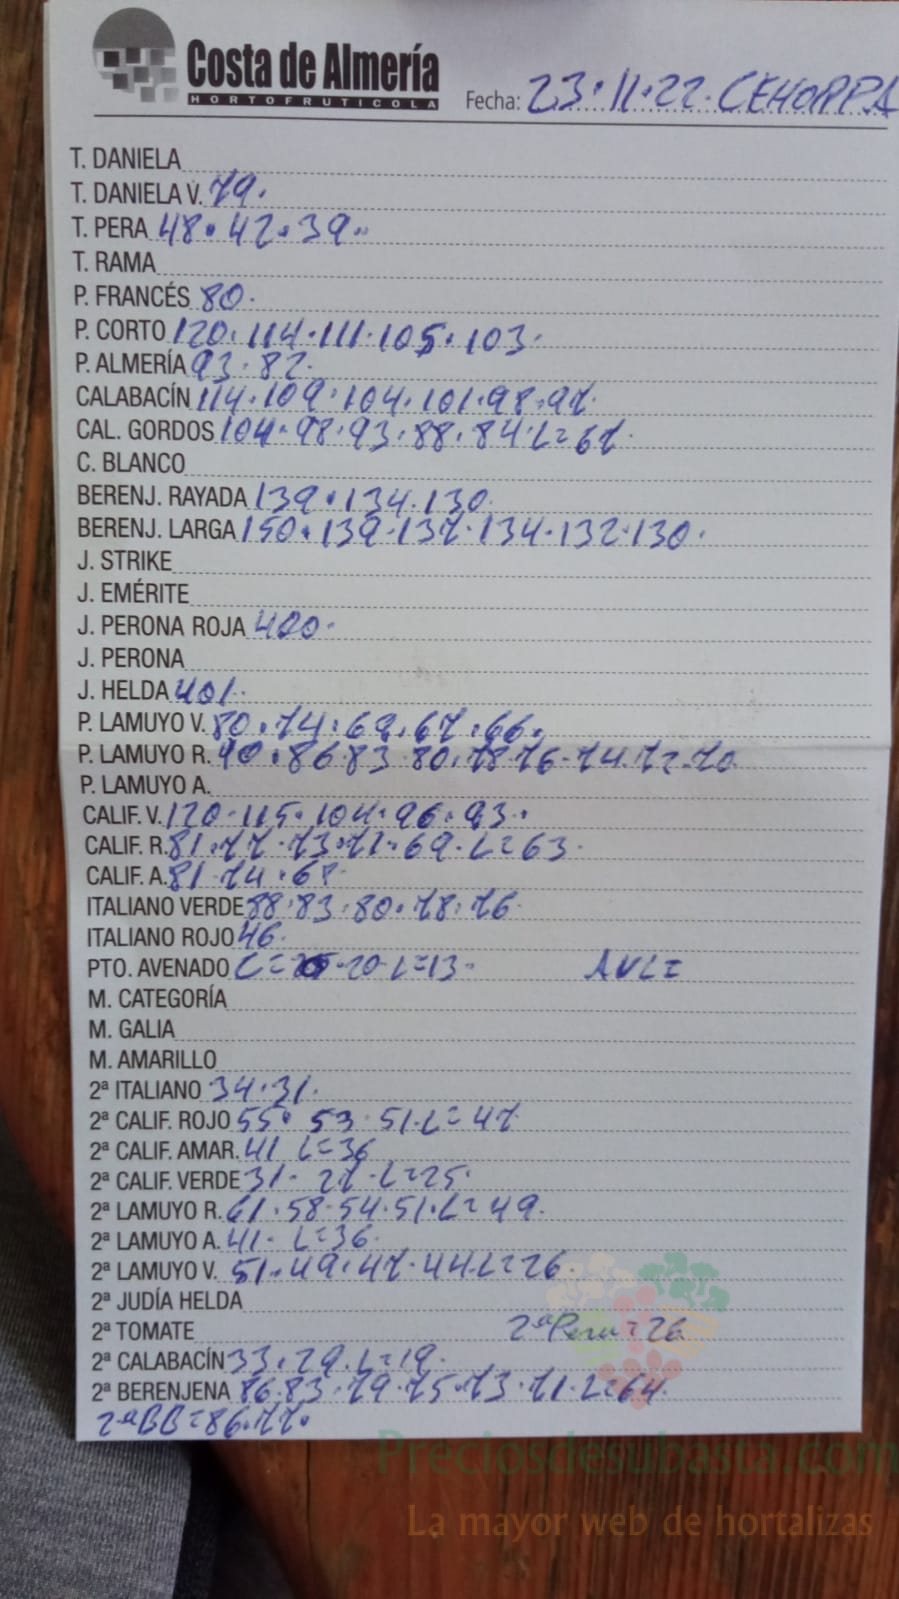 Costa de Almería
HORTOFRUTICOLA
Fecha: 23·11·22· CEHORPA
T. DANIELA
T. DANIELA V. 79·
T. PERA 48·42·39··
T. RAMA
P. FRANCÉS 80·
P. CORTO 120·114·111·105·103·
P. ALMERÍA 93·82·
CALABACÍN 114·109·104·101·98·97·
CAL. GORDOS 104·98·93·88·84·L=67·
C. BLANCO
BERENJ. RAYADA 139·134·130·
BERENJ. LARGA 150·139·137·134·132·130·
J. STRIKE
J. EMÉRITE
J. PERONA ROJA 400·
J. PERONA
J. HELDA 401·
P. LAMUYO V. 80·74·69·67·66·
P. LAMUYO R. 90·86·83·80·78·76·74·72·70
P. LAMUYO A.
CALIF. V. 120·115·104·96·93·
CALIF. R. 81·77·73·71·69·L=63·
CALIF. A. 81·74·67·
ITALIANO VERDE 88·83·80·78·76·
ITALIANO ROJO 46·
PTO. AVENADO ·20·L=13·
M. CATEGORÍA
M. GALIA
M. AMARILLO
2ª ITALIANO 34·31·
2ª CALIF. ROJO 55·53·51·L=47
2ª CALIF. AMAR. 41 L=36
2ª CALIF. VERDE 31·27·L=25·
2ª LAMUYO R. 61·58·54·51·L=49·
2ª LAMUYO A. 41· L=36·
2ª LAMUYO V. 51·49·47·44·L=26·
2ª JUDÍA HELDA
2ª TOMATE 2ª Pera=26
2ª CALABACÍN 33·29·L=19·
2ª BERENJENA 86·83·79·75·73·71·L=64·
2ªBB=86·77·
Preciosdesubasta.com
La mayor web de hortalizas